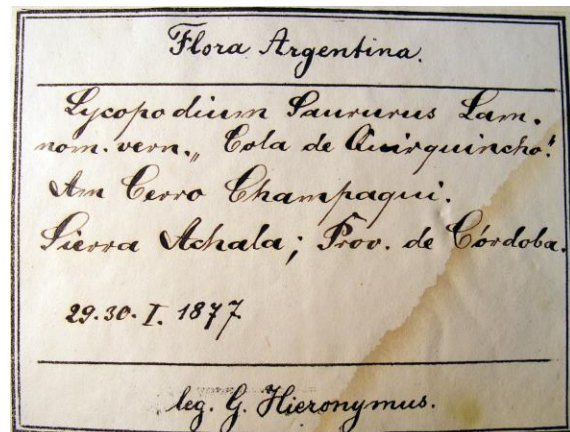 Flora Argentina.
Lycopodium Saururus Lam.
nom. vern. „Cola de Quirquincho."
Am Cerro Champaqui.
Sierra Achala; Prov. de Córdoba.
29.30. I. 1877
leg. G. Hieronymus.